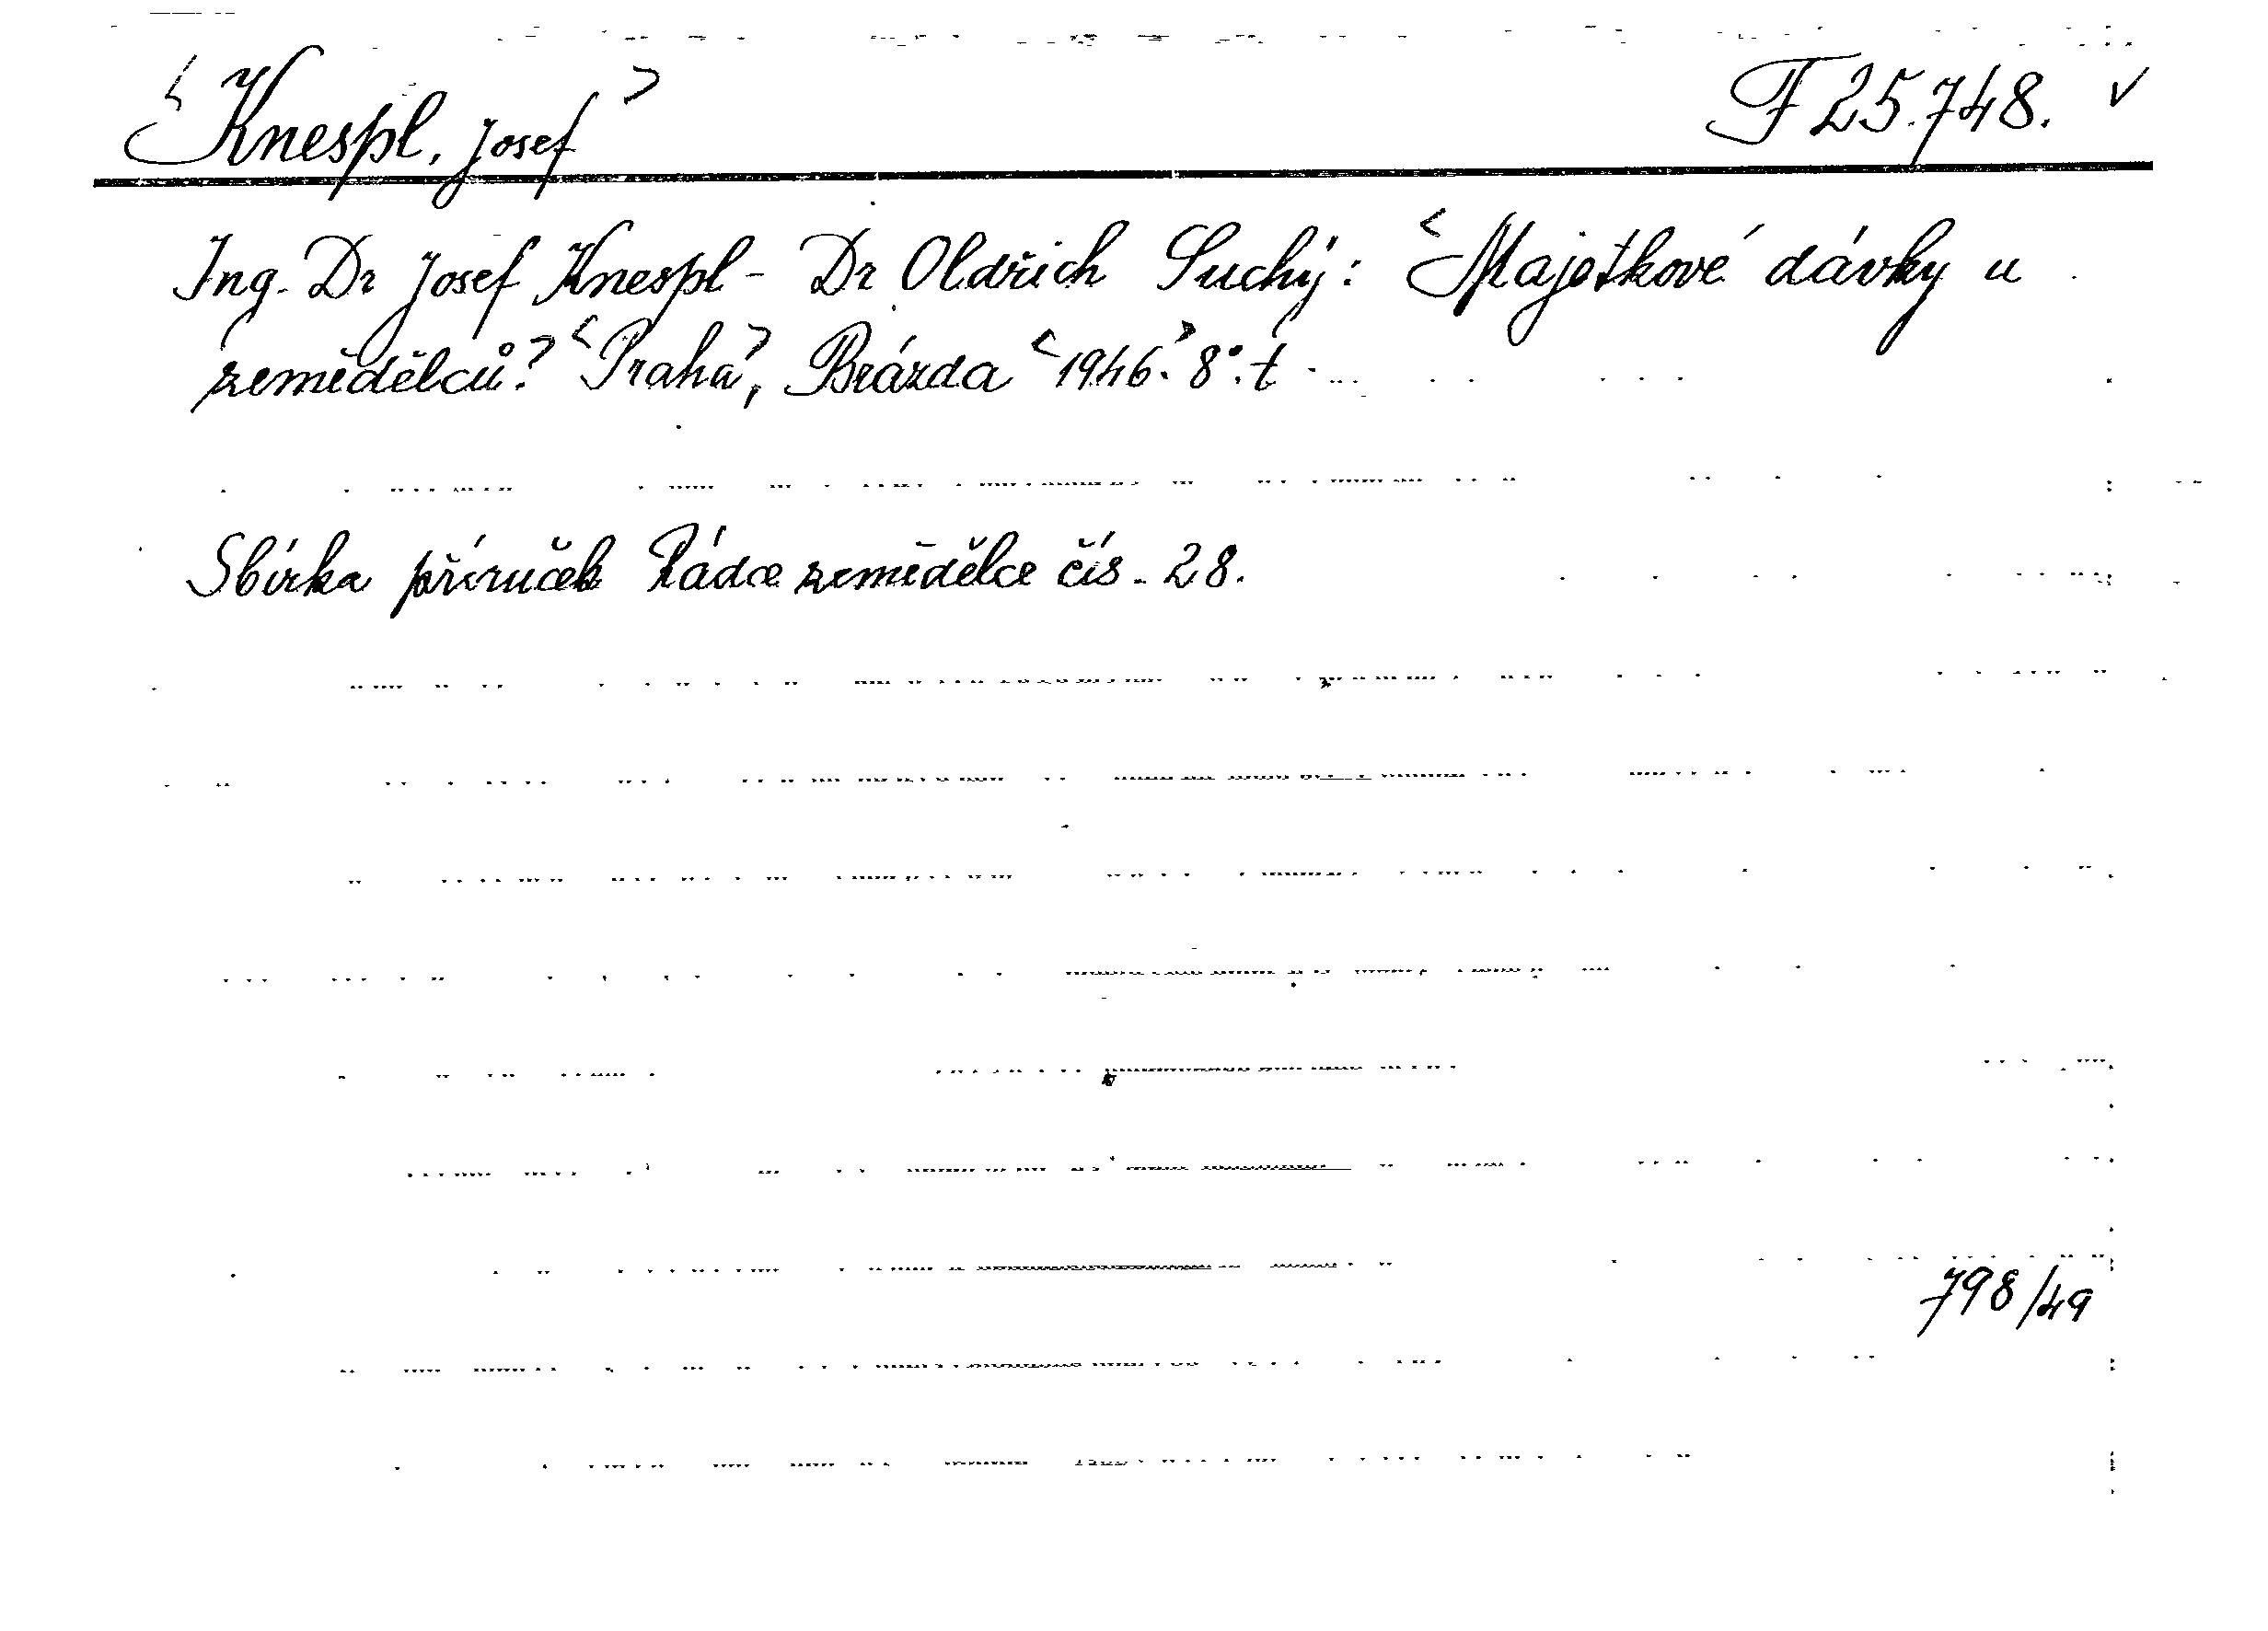 <Knespl, Josef> F 25.748. ✓
Ing. Dr Josef Knespl - Dr Oldřich Suchý: <Majetkové dávky u
zemědělců.> <Praha>, Brázda <1946.> 8°. t
Sbírka příruček Rádce zemědělce čís. 28.
798/49